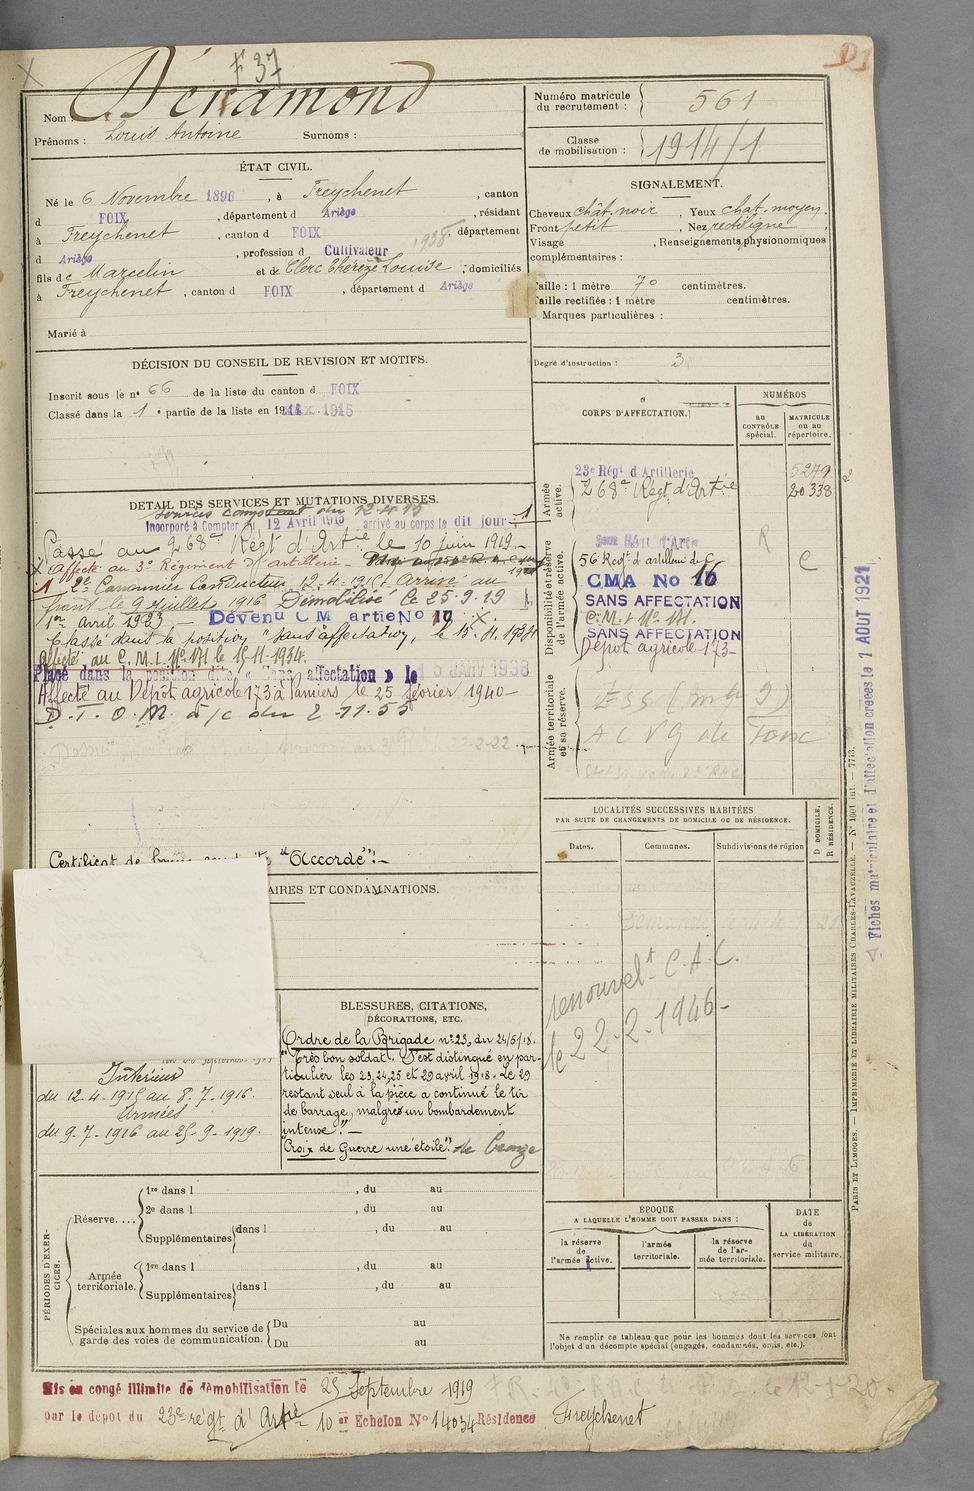 F 37
Nom : Déramond
Prénoms : Louis Antoine Surnoms :
ÉTAT CIVIL.
Né le 6 Novembre 1896, à Freychenet, canton
d FOIX, département d Ariège, résidant
à Freychenet, canton d FOIX, département
d Ariège, profession d Cultivateur 1938
fils de Marcelin et de Clerc Thérèze Louise ; domiciliés
à Freychenet, canton d FOIX, département d Ariège
Marié à
DÉCISION DU CONSEIL DE REVISION ET MOTIFS.
Inscrit sous le nº 66 de la liste du canton d FOIX
Classé dans la 1 e partie de la liste en 19 1915
DETAIL DES SERVICES ET MUTATIONS DIVERSES.
Services comptent du 12-4-15
Incorporé à Compter du 12 Avril 1915 arrivé au corps le dit jour
Passé au 268e Régt d'Artie le 10 juin 1919
affecté au 3e Régiment d'artillerie
2e Canonnier Conducteur 12-4-1915. Arrivé au
front le 9 juillet 1916 Démobilisé le 25-9-19
1er avril 1923 - Devenu CM artie No 19
Classé dans la position "sans affectation", le 15.11.1934
Affecté au C.M.I. Nº 171 le 15-11-1934.
Placé dans la position dite « Sans affectation » le 15 JANV 1938
Affecté au Dépôt agricole 173 à Pamiers, le 25 février 1940-
D.T.O.M. à/c du 2-11-55
Certificat de "Accordé"!-
AIRES ET CONDAMNATIONS.
Intérieur
du 12-4-1915 au 8-7-1916.
Armées
du 9-7-1916 au 25-9-1919.
BLESSURES, CITATIONS,
DÉCORATIONS, ETC.
Ordre de la Brigade nº 23, du 24/5/18.
"Très bon soldat. S'est distingué en par-
ticulier les 23, 24, 25 et 29 avril 1918. Le 29
restant seul à la pièce a continué le tir
de barrage, malgré un bombardement
intense".-
Croix de Guerre une étoile". de bronze
PÉRIODES D'EXERCICES.
Réserve....
1re dans l , du au
2e dans l , du au
Supplémentaires dans l , du au
Armée territoriale.
1re dans l , du au
Supplémentaires dans l , du au
Spéciales aux hommes du service de
garde des voies de communication.
Du au
Du au
Mis en congé illimité de démobilisation le 25 Septembre 1919
par le dépôt du 23e régt d'Artie 10 er Echelon No 14034 Résidence Freychenet
Numéro matricule
du recrutement : 561
Classe
de mobilisation : 1914/1
SIGNALEMENT.
Cheveux chât. noir, Yeux chat. moyen.
Front petit, Nez rectiligne
Visage , Renseignements physionomiques
complémentaires :
Taille : 1 mètre 70 centimètres.
Taille rectifiée : 1 mètre centimètres.
Marques particulières :
Degré d'instruction : 3
CORPS D'AFFECTATION.
NUMÉROS
au CONTRÔLE spécial.
MATRICULE ou au répertoire.
Armée active.
23e Régt d'Artillerie 5279
268e Régt d'Artie 20338
Disponibilité et réserve de l'armée active.
56 Regt d'artillerie de C R C
CMA No 16
SANS AFFECTATION
C.M.I. Nº 171.
SANS AFFECTATION
Dépôt agricole 173-
Armée territoriale et sa réserve.
LOCALITÉS SUCCESSIVES HABITÉES
PAR SUITE DE CHANGEMENTS DE DOMICILE OU DE RÉSIDENCE.
Dates. Communes. Subdivisions de région
D DOMICILE.
R RÉSIDENCE.
renouvelt C.A.C.
le 22-2-1946-
ÉPOQUE
A LAQUELLE L'HOMME DOIT PASSER DANS :
la réserve de l'armée active.
l'armée territoriale.
la réserve de l'armée territoriale.
DATE de LA LIBÉRATION du service militaire.
Ne remplir ce tableau que pour les hommes dont les services font
l'objet d'un décompte spécial (engagés, condamnés, omis, etc.).
PARIS ET LIMOGES. — IMPRIMERIE ET LIBRAIRIE MILITAIRES CHARLES-LAVAUZELLE. — Nº 1001 int. — 7713.
Fiches matriculaire et d'affectation créées le 1 AOUT 1921